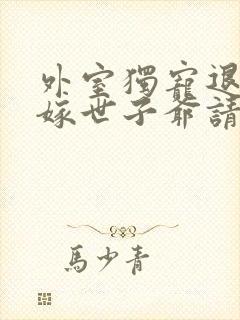 外室獨寵退
嫁世子爺請
馬少青